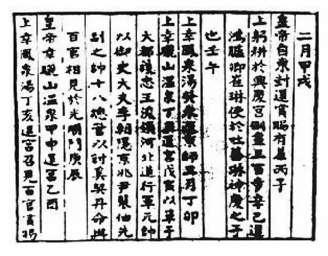 二月甲戌
皇帝自東封還賞賜有差丙子
上躬耕於興慶宮側盡三百步辛巳遣
鴻臚卿崔琳使於吐蕃琳神慶之子
也壬午
上幸鳳泉湯癸未還京師三月丁卯
上幸山溫泉丁還宮戊寅以單于
大都護忠王浚領河北道行軍元帥
以御史大夫李朝隱京兆尹裴伷先
副之帥十八總管以討奚契丹命與
百官相見於光順門庚辰
皇帝幸山溫泉甲申還宮乙酉
上幸鳳泉湯丁亥還宮召見百官賞